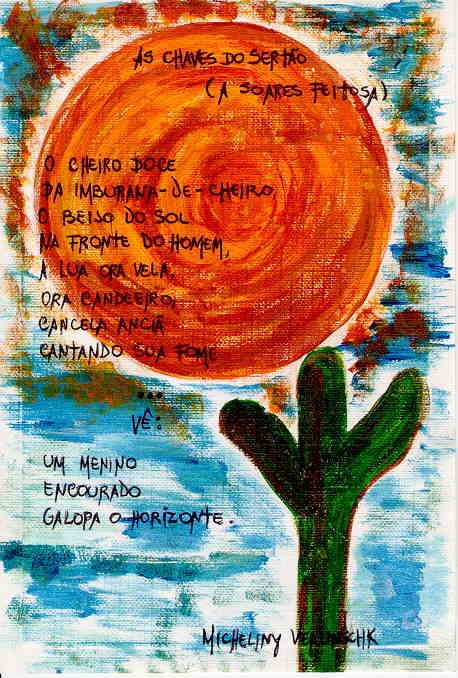 AS CHAVES DO SERTÃO
(A SOARES FEITOSA)
O CHEIRO DOCE
DA IMBURANA-DE-CHEIRO,
O BEIJO DO SOL
NA FRONTE DO HOMEM,
A LUA ORA VELA,
ORA CANDEEIRO,
CANCELA ANCIÃ
CANTANDO SUA FOME
...
VÊ:
UM MENINO
ENCOURADO
GALOPA O HORIZONTE.
MICHELINY VERUNSCHK